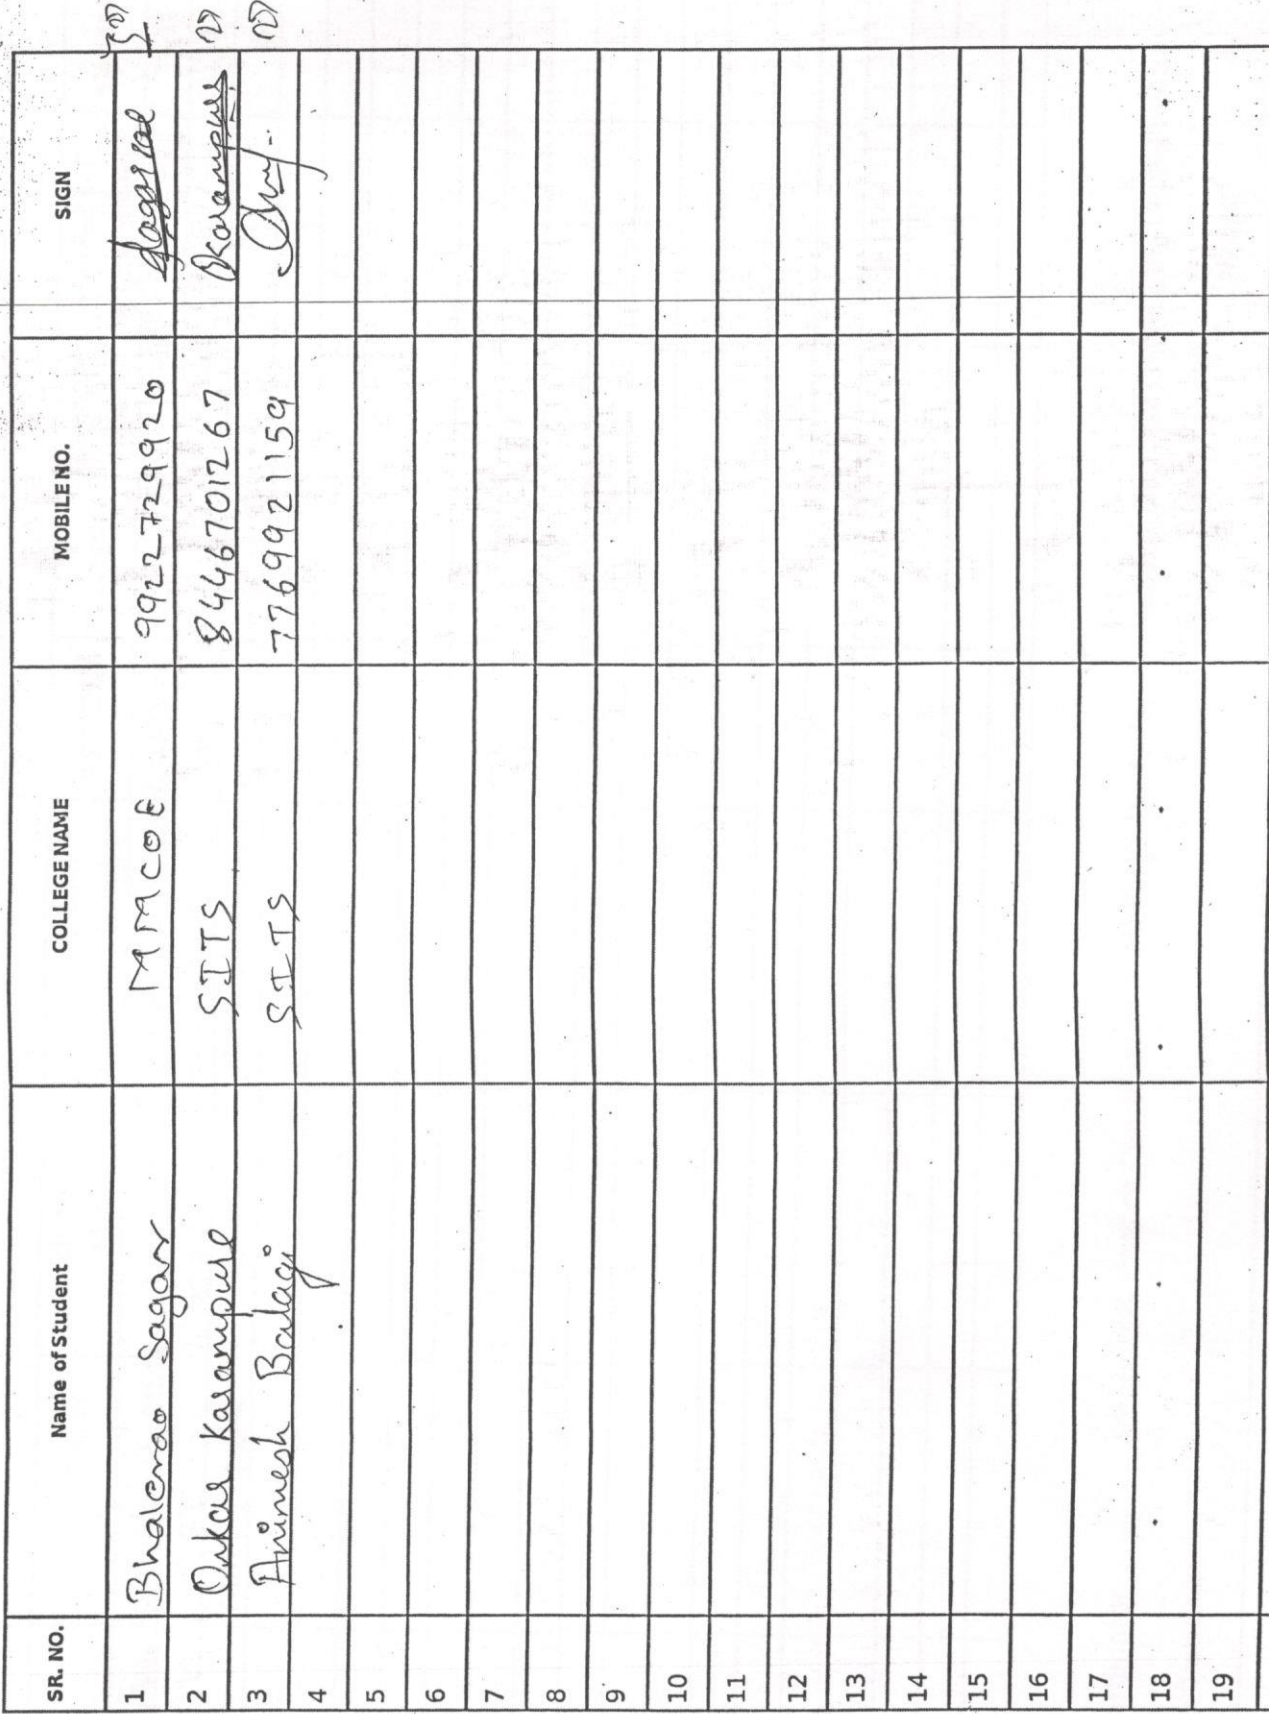 SR. NO. Name of Student COLLEGE NAME MOBILE NO. SIGN
1 Bhalerao Sagar MMCOE 9922729920
2 Onkar Karampure SITS 8446701267 OKarampure
3 Animesh Balagi SITS 7769921159
4
5
6
7
8
9
10
11
12
13
14
15
16
17
18
19